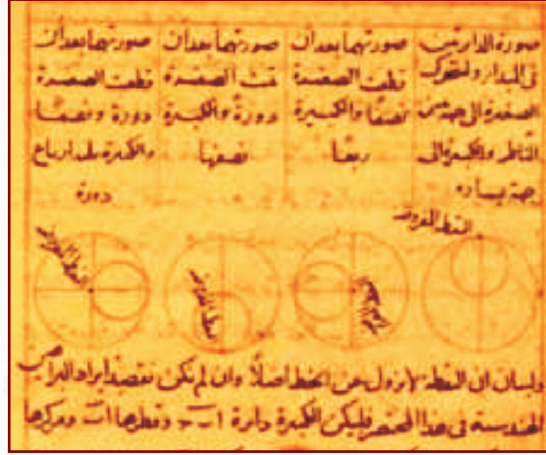 صورة الدائرتين
فى المبدا ولتتحرك
الصغيرة الى جهة يمين
الناظر والكبيرة الى
جهة يساره
صورتهما بعد ان
قطعت الصغيرة
نصفا والكبيرة
ربعا
صورتهما بعد ان
تمت الصغيرة
دورة والكبيرة
نصفها
صورتهما بعد ان
قطعت الصغيرة
دورة ونصفا
والكبيرة ثلثة ارباع
دورة
النقطة المفروضة
النقطة المفروضة
النقطة المفروضة
ولبيان ان النقطة لا تزول عن الخط اصلا وان لم نكن نقصد ايراد البراهين
الهندسية فى هذا المختصر فليكن الكبيرة دائرة وقطرها ا ب ومركزها